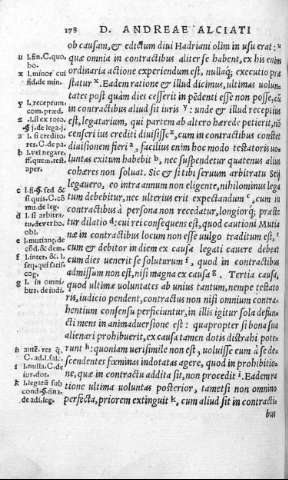 178 D. ANDREAE ALCIATI
ob causam, & edictum diui Hadriani olim in usu erat:
quæ omnia in contractibus aliter se habent, ex his enim
ordinaria actione experiendum est, nullaq; executio præ
statur x. Eadem ratione & illud dicimus, ultimas uolun
tates post quàm dies cesserit in pēdenti esse non posse, cū
in contractibus aliud sit iuris y: unde & illud receptius
est, legatarium, qui partem ab altero hærede petierit, nō
censeri ius crediti diuisisse z, cum in contractibus constet
diuisionem fieri a, facilius enim hoc modo testatoris uo
luntas exitum habebit b, nec suspendetur quatenus alius
cohæres non soluat. Sic & si tibi seruum arbitratu Seij
legauero, eo intra annum non eligente, nihilominus lega
tum debebitur, nec ulterius erit expectandum c, cum in
contractibus à persona non recedatur, longiorq; præste
tur dilatio d: cui rei consequens est, quod cautioni Mutia
næ in contractibus locum non esse uulgo traditum est e,
cum & debitor in diem ex causa legati cauere debeat
cum dies uenerit se soluturum f, quod in contractibus
admissum non est, nisi magna ex causa g. Tertia causa,
quod ultimæ uoluntates ab unius tantum, nempe testato
ris, iudicio pendent, contractus non nisi omnium contra
hentium consensu perficiuntur, in illis igitur sola defun
cti mens in animaduersione est: quapropter si bona sua
alienari prohibuerit, ex causa tamen dotis distrahi pote
runt h: quoniam uerisimile non est, uoluisse eum à se de
scendentes fœminas indotatas agere, quod in prohibitio
ne, quæ in contractu addita sit, non procedit i. Eadem ra
tione ultima uoluntas posterior, tametsi non omnino
perfecta, priorem extinguit k, cum aliud sit in contractu
bus
u l. fin. C. quo.
bo.
x l. minor cui
fid. de min.
y l. receptum.
com. præd.
z l. si ex toto.
a l. si credito
res. C. de pa
b l. uel negare.
quem. test.
aper.
d l. si arbitra
tu. de uer. ob.
obl.
f l. inter. &c. l.
g l. in omni
bus. de iudi.
h autē. res q̄.